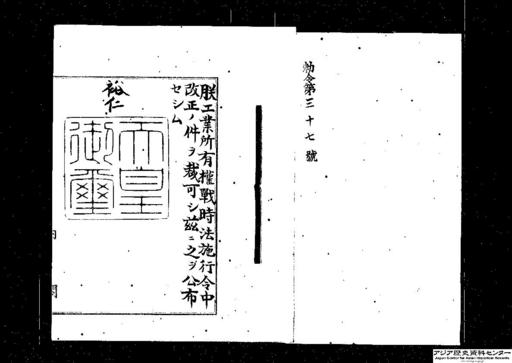 勅令第三十七號
朕工業所有權戰時法施行令中
改正ノ件ヲ裁可シ茲ニ之ヲ公布
セシム
裕仁
天皇
御璽
内閣
アジア歴史資料センター
Japan Center for Asian Historical Records